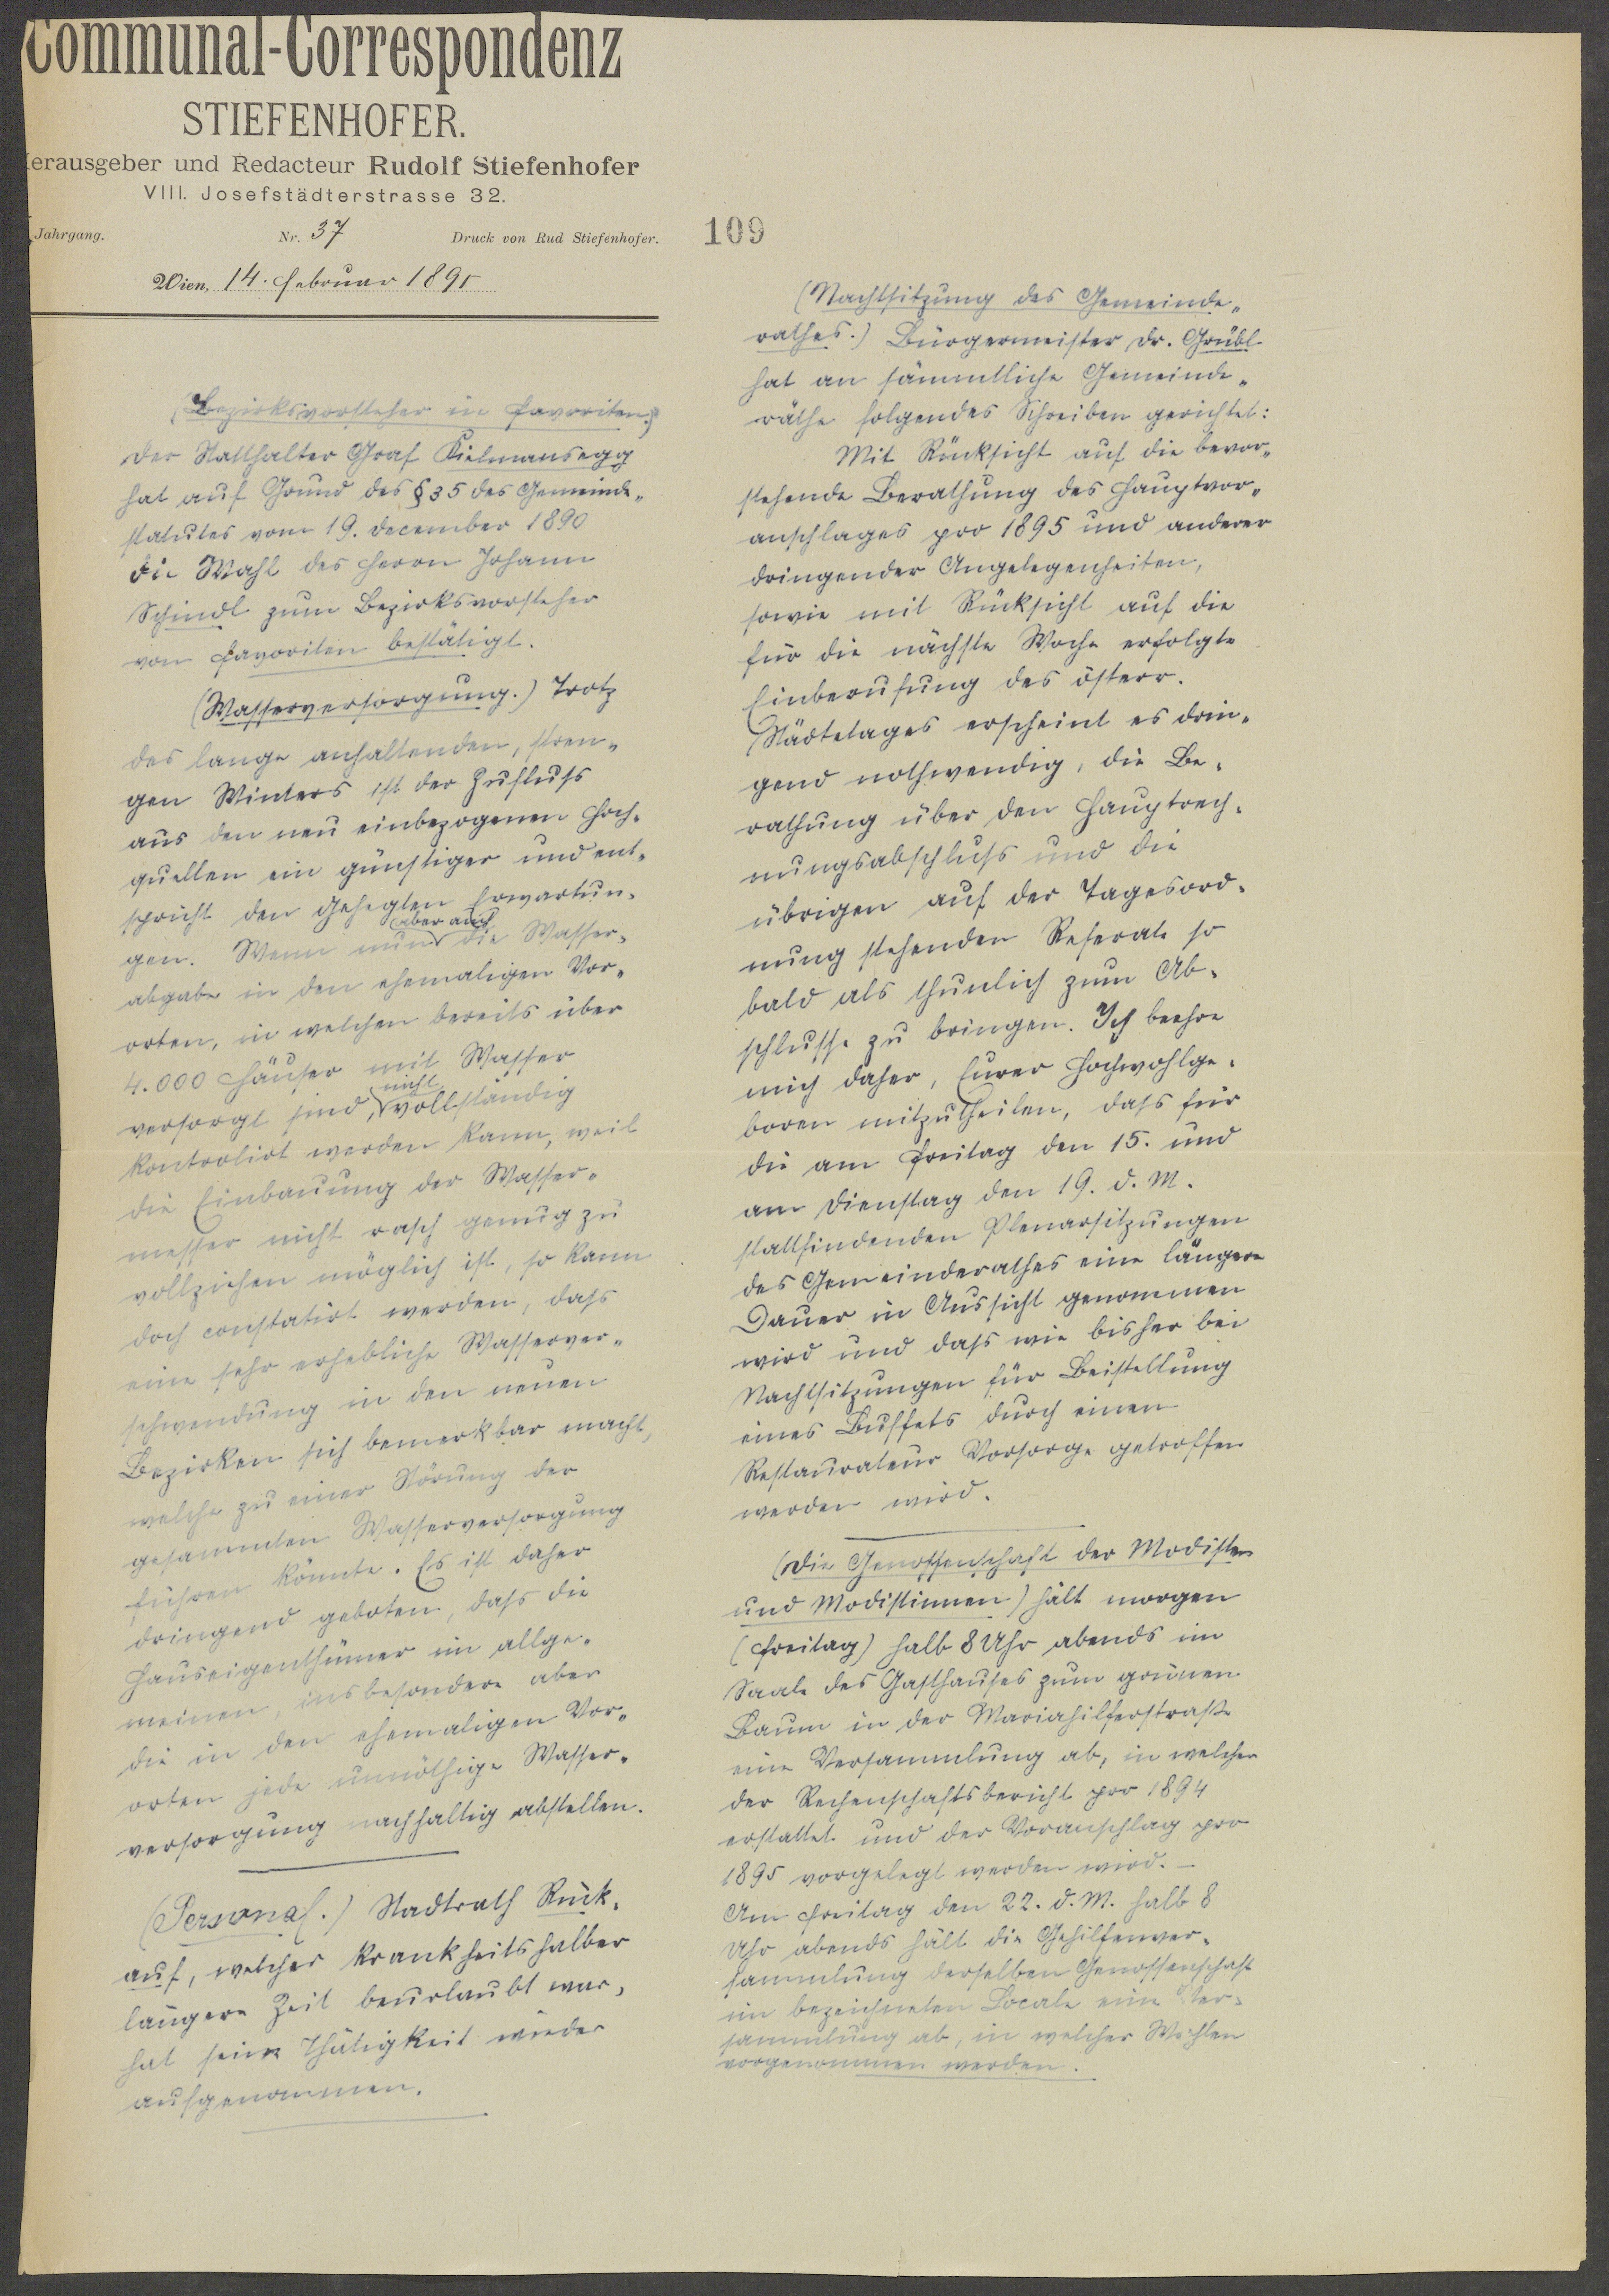 Communal-Correspondenz
STIEFENHOFER.
Herausgeber und Redacteur Rudolf Stiefenhofer
VIII. Josefstädterstrasse 32.
Jahrgang. Nr. 37 Druck von Rud Stiefenhofer.
Wien, 14. Februar 1895
(Bezirksvorsteher in Favoriten.)
Der Statthalter Graf Kielmansegg
hat auf Grund des § 35 des Gemeinde-
statutes vom 19. December 1890
die Wahl des Herrn Johann
Schindl zum Bezirksvorsteher
von Favoriten bestätigt.
(Wasserversorgung.) Trotz
des lange anhaltenden, stren-
gen Winters ist der Zufluss
aus den neu einbezogenen Hoch-
quellen ein günstiger und ent-
spricht den gehegten Erwartun-
gen. Wenn nun aber auch die Wasser-
abgabe in den ehemaligen Vor-
orten, in welchen bereits über
4.000 Häuser mit Wasser
versorgt sind, nicht vollständig
kontrolirt werden kann, weil
die Einbauung der Wasser-
messer nicht rasch genug zu
vollziehen möglich ist, so kann
doch constatirt werden, dass
eine sehr erhebliche Wasserver-
schwendung in den neuen
Bezirken sich bemerkbar macht,
welche zu einer Störung der
gesammten Wasserversorgung
führen könnte. Es ist daher
dringend geboten, dass die
Hauseigenthümer im allge-
meinen, insbesondere aber
die in den ehemaligen Vor-
orten jede unnöthige Wasser-
versorgung nachhaltig abstellen.
(Personal.) Stadtrath Rück-
auf, welcher krankheitshalber
längere Zeit beurlaubt war,
hat seine Thätigkeit wieder
aufgenommen.
109
(Nachtsitzung des Gemeinde-
rathes.) Bürgermeister Dr. Grübl
hat an sämmtliche Gemeinde-
räthe folgendes Schreiben gerichtet:
Mit Rücksicht auf die bevor-
stehende Berathung des Hauptvor-
anschlages pro 1895 und anderer
dringender Angelegenheiten,
sowie mit Rücksicht auf die
für die nächste Woche erfolgte
Einberufung des österr.
Städtetages erscheint es drin-
gend nothwendig, die Be-
rathung über den Hauptrech-
nungsabschluss und die
übrigen auf der Tagesord-
nung stehenden Referate so
bald als thunlich zum Ab-
schlusse zu bringen. Ich beehre
mich daher, Euer Hochwohlge-
boren mitzutheilen, dass für
die am Freitag den 15. und
am Dienstag den 19. d. M.
stattfindenden Plenarsitzungen
des Gemeinderathes eine längere
Dauer in Aussicht genommen
wird und dass wie bisher bei
Nachtsitzungen für Beistellung
eines Buffets durch einen
Restaurateur Vorsorge getroffen
werden wird.
(Die Genossenschaft der Modisten
und Modistinnen) hält morgen
(Freitag) halb 8 Uhr abends im
Saale des Gasthauses zum grünen
Baum in der Mariahilferstraße
eine Versammlung ab, in welcher
der Rechenschaftsbericht pro 1894
erstattet und der Voranschlag pro
1895 vorgelegt werden wird. –
Am Freitag den 22. d. M. halb 8
Uhr abends hält die Gehilfenver-
sammlung derselben Genossenschaft
im bezeichneten Locale eine Ver-
sammlung ab, in welcher Wahlen
vorgenommen werden.